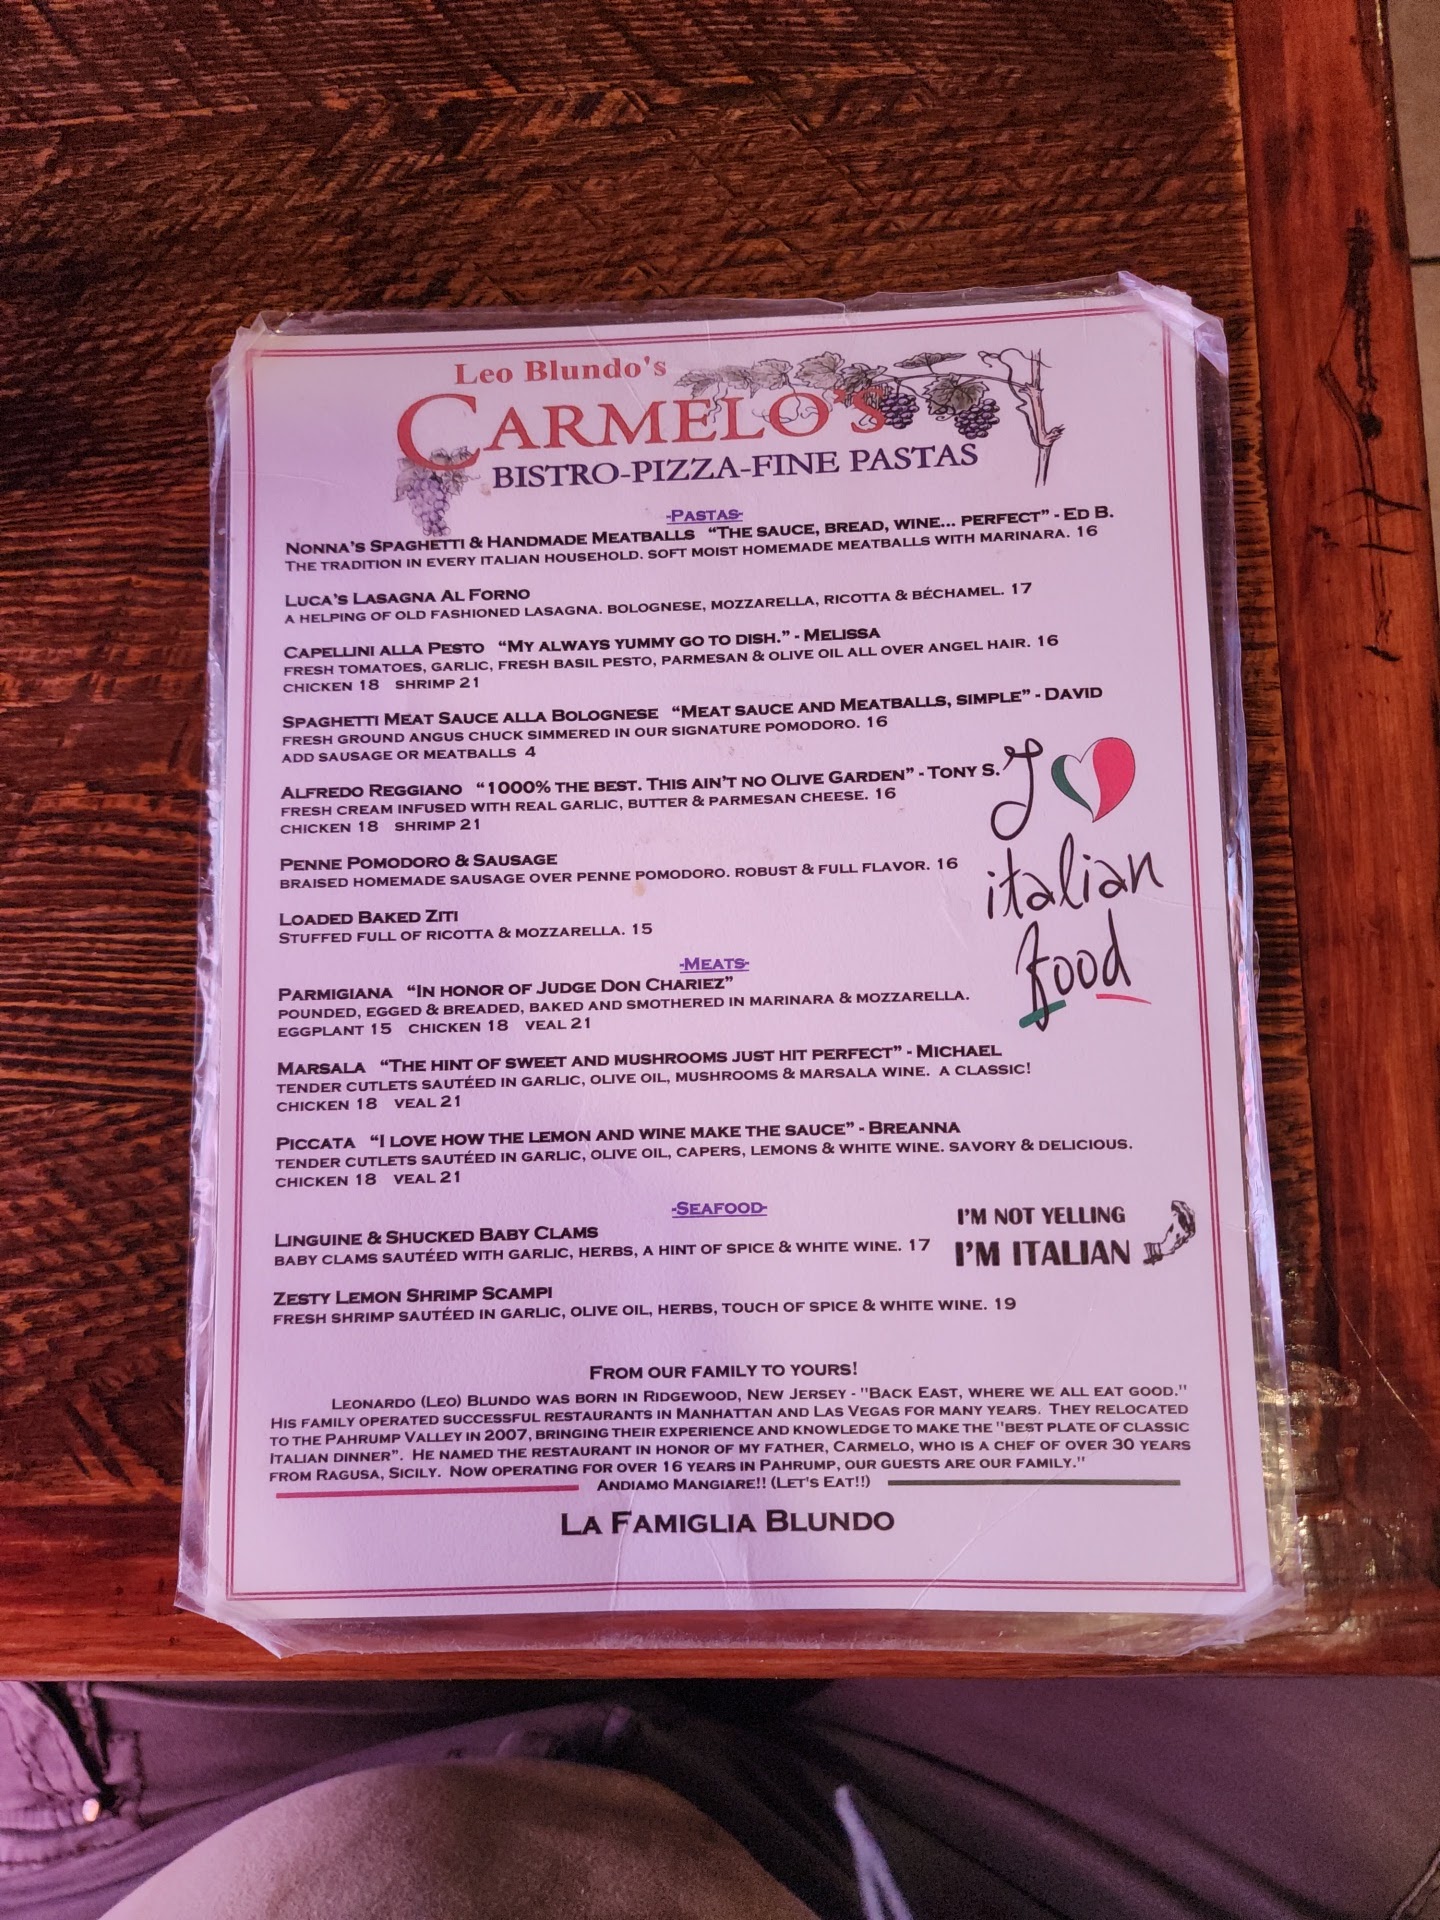 Leo Blundo's
CARMELO'S
BISTRO-PIZZA-FINE PASTAS
-PASTAS-
NONNA'S SPAGHETTI & HANDMADE MEATBALLS "THE SAUCE, BREAD, WINE... PERFECT" - ED B.
THE TRADITION IN EVERY ITALIAN HOUSEHOLD. SOFT MOIST HOMEMADE MEATBALLS WITH MARINARA. 16
LUCA'S LASAGNA AL FORNO
A HELPING OF OLD FASHIONED LASAGNA. BOLOGNESE, MOZZARELLA, RICOTTA & BÉCHAMEL. 17
CAPELLINI ALLA PESTO "MY ALWAYS YUMMY GO TO DISH." - MELISSA
FRESH TOMATOES, GARLIC, FRESH BASIL PESTO, PARMESAN & OLIVE OIL ALL OVER ANGEL HAIR. 16
CHICKEN 18 SHRIMP 21
SPAGHETTI MEAT SAUCE ALLA BOLOGNESE "MEAT SAUCE AND MEATBALLS, SIMPLE" - DAVID
FRESH GROUND ANGUS CHUCK SIMMERED IN OUR SIGNATURE POMODORO. 16
ADD SAUSAGE OR MEATBALLS 4
ALFREDO REGGIANO "1000% THE BEST. THIS AIN'T NO OLIVE GARDEN" - TONY S.
FRESH CREAM INFUSED WITH REAL GARLIC, BUTTER & PARMESAN CHEESE. 16
CHICKEN 18 SHRIMP 21
PENNE POMODORO & SAUSAGE
BRAISED HOMEMADE SAUSAGE OVER PENNE POMODORO. ROBUST & FULL FLAVOR. 16
LOADED BAKED ZITI
STUFFED FULL OF RICOTTA & MOZZARELLA. 15
I
italian
food
-MEATS-
PARMIGIANA "IN HONOR OF JUDGE DON CHARIEZ"
POUNDED, EGGED & BREADED, BAKED AND SMOTHERED IN MARINARA & MOZZARELLA.
EGGPLANT 15 CHICKEN 18 VEAL 21
MARSALA "THE HINT OF SWEET AND MUSHROOMS JUST HIT PERFECT" - MICHAEL
TENDER CUTLETS SAUTÉED IN GARLIC, OLIVE OIL, MUSHROOMS & MARSALA WINE. A CLASSIC!
CHICKEN 18 VEAL 21
PICCATA "I LOVE HOW THE LEMON AND WINE MAKE THE SAUCE" - BREANNA
TENDER CUTLETS SAUTÉED IN GARLIC, OLIVE OIL, CAPERS, LEMONS & WHITE WINE. SAVORY & DELICIOUS.
CHICKEN 18 VEAL 21
-SEAFOOD-
LINGUINE & SHUCKED BABY CLAMS
BABY CLAMS SAUTÉED WITH GARLIC, HERBS, A HINT OF SPICE & WHITE WINE. 17
I'M NOT YELLING
I'M ITALIAN
ZESTY LEMON SHRIMP SCAMPI
FRESH SHRIMP SAUTÉED IN GARLIC, OLIVE OIL, HERBS, TOUCH OF SPICE & WHITE WINE. 19
FROM OUR FAMILY TO YOURS!
LEONARDO (LEO) BLUNDO WAS BORN IN RIDGEWOOD, NEW JERSEY - "BACK EAST, WHERE WE ALL EAT GOOD."
HIS FAMILY OPERATED SUCCESSFUL RESTAURANTS IN MANHATTAN AND LAS VEGAS FOR MANY YEARS. THEY RELOCATED
TO THE PAHRUMP VALLEY IN 2007, BRINGING THEIR EXPERIENCE AND KNOWLEDGE TO MAKE THE "BEST PLATE OF CLASSIC
ITALIAN DINNER". HE NAMED THE RESTAURANT IN HONOR OF MY FATHER, CARMELO, WHO IS A CHEF OF OVER 30 YEARS
FROM RAGUSA, SICILY. NOW OPERATING FOR OVER 16 YEARS IN PAHRUMP, OUR GUESTS ARE OUR FAMILY."
ANDIAMO MANGIARE!! (LET'S EAT!!)
LA FAMIGLIA BLUNDO